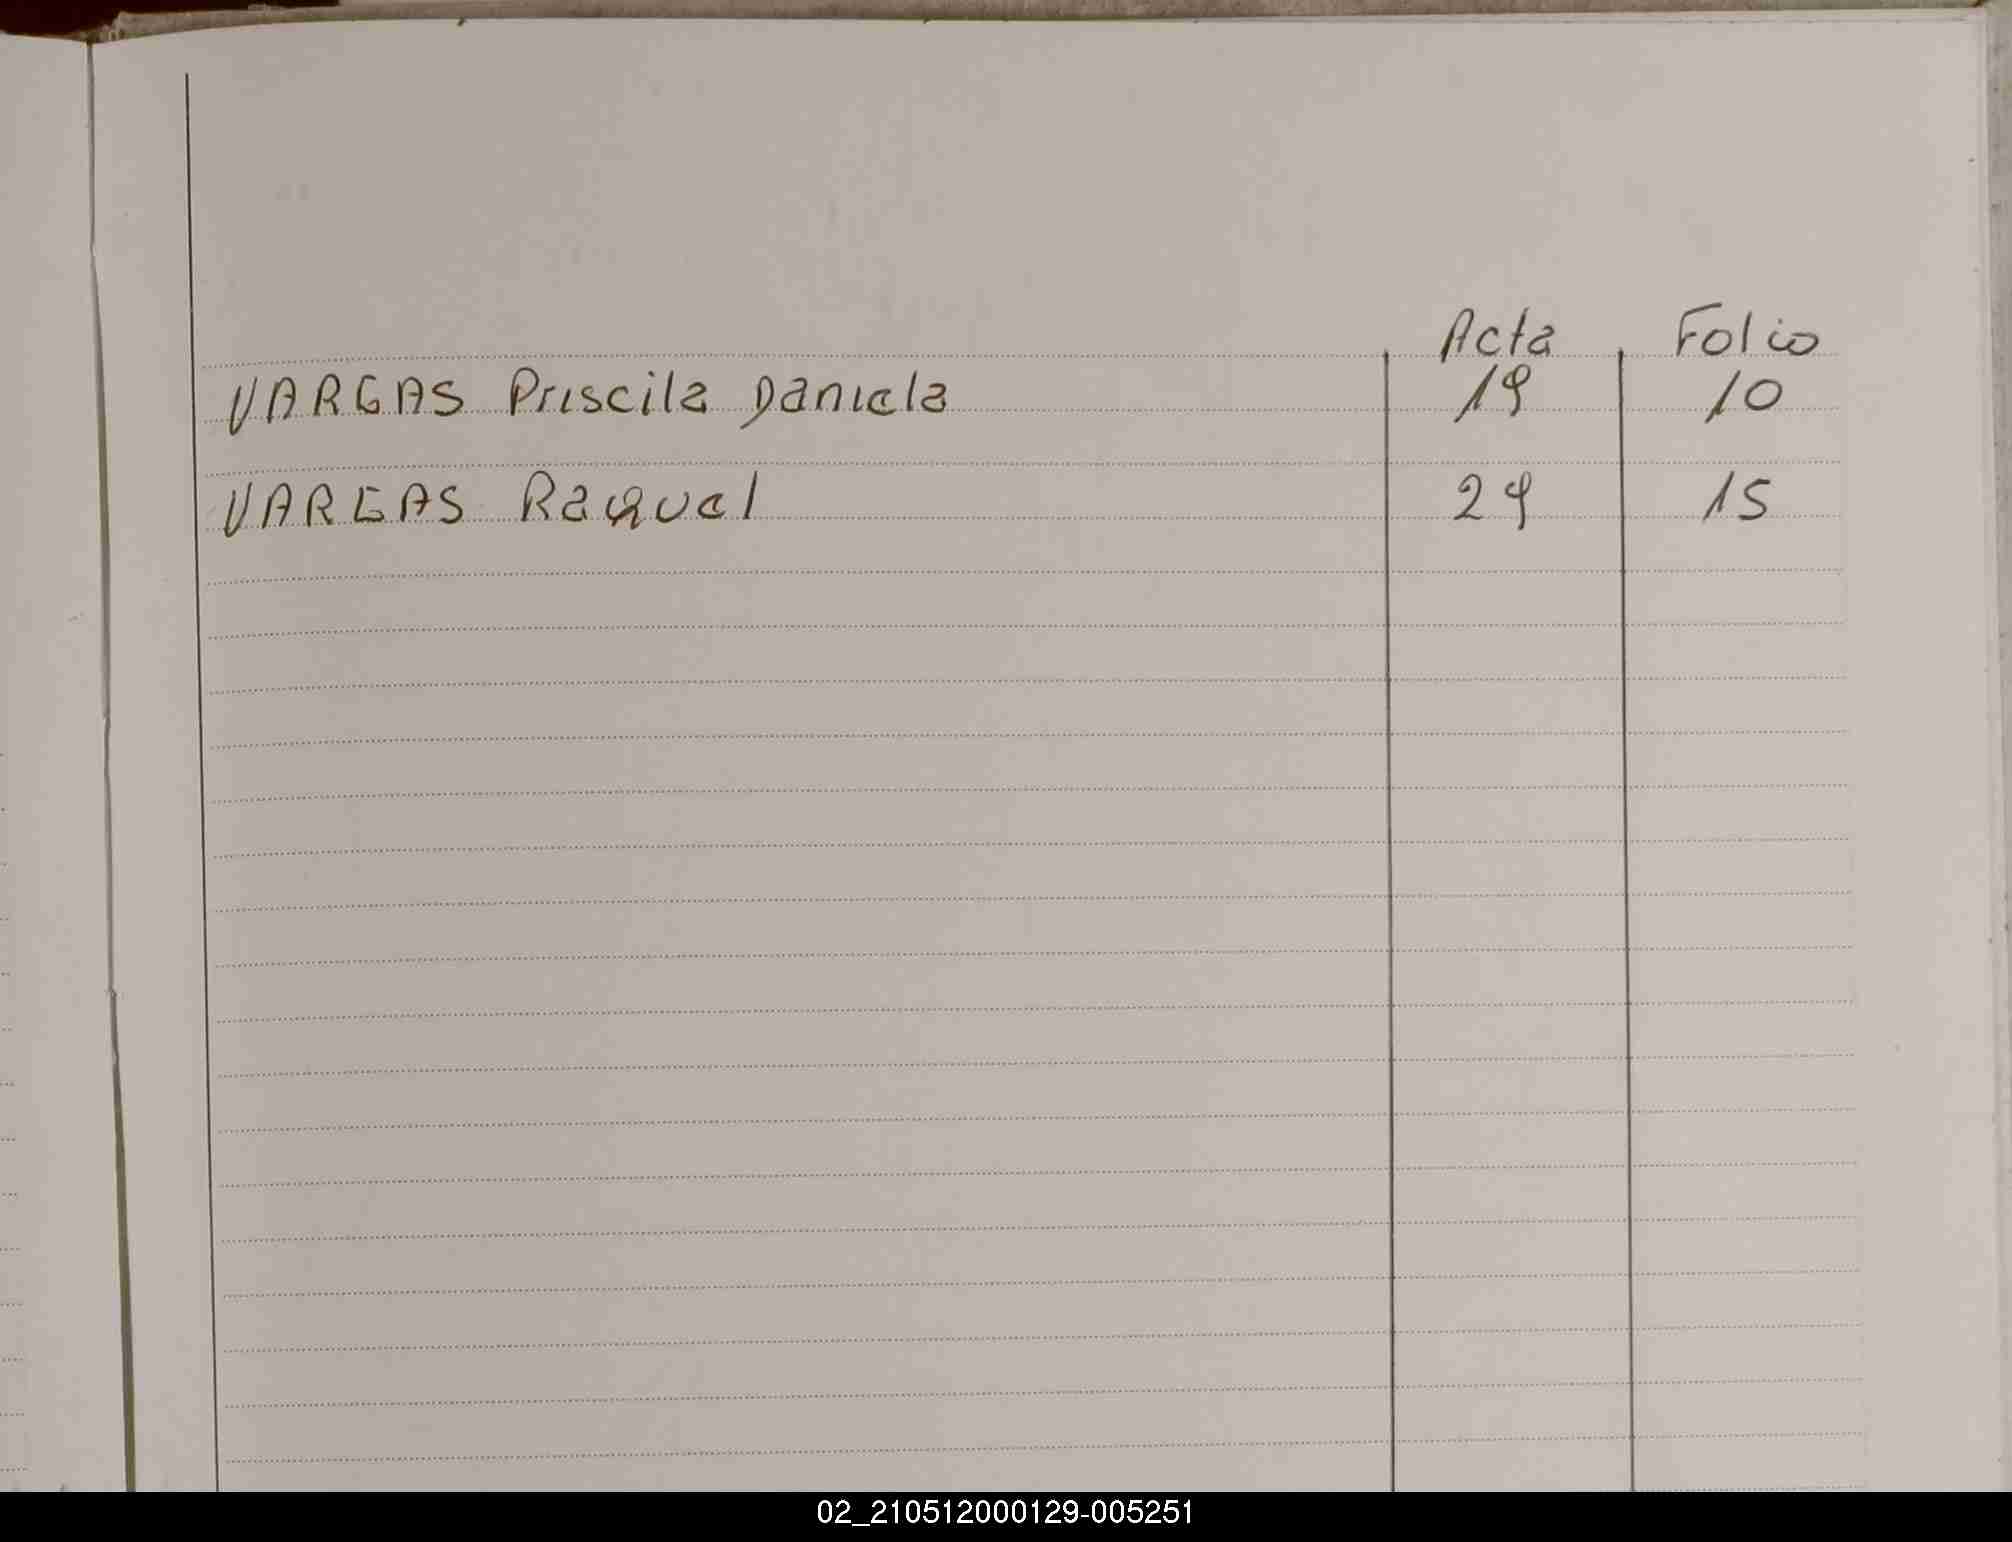 Acta Folio
VARGAS Priscila Daniela 19 10
VARGAS Raquel 29 15
02_210512000129-005251